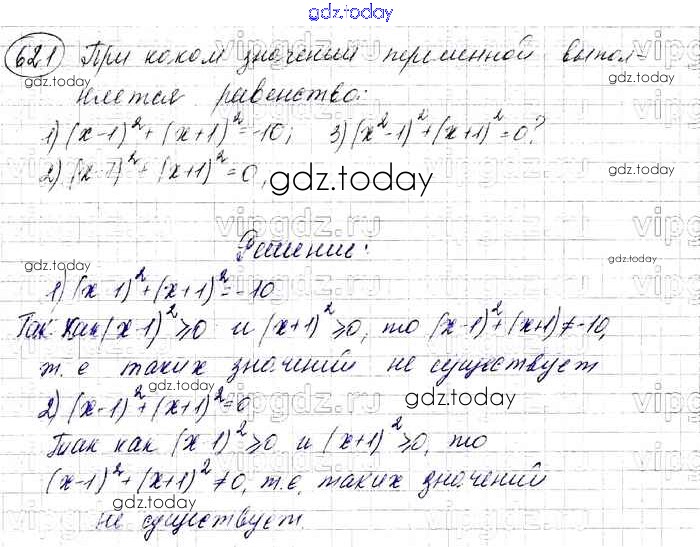 gdz.today
621 При каком значении переменной выпол-
няется равенство:
1) (x-1)² + (x+1)² = -10; 3) (x²-1)² + (x+1)² = 0?
2) (x-1)² + (x+1)² = 0,
Решение:
1) (x-1)² + (x+1)² = -10
Так как (x-1)² ≥ 0 и (x+1)² ≥ 0, то (x-1)² + (x+1) ≠ -10,
т. е таких значений не существует
2) (x-1)² + (x+1)² = 0
Так как (x-1)² ≥ 0 и (x+1)² ≥ 0, то
(x-1)² + (x+1)² ≠ 0, т.е. таких значений
не существует.
gdz.today
gdz.today
gdz.today
gdz.today
gdz.today
gdz.today
gdz.today
vipgdz.ru